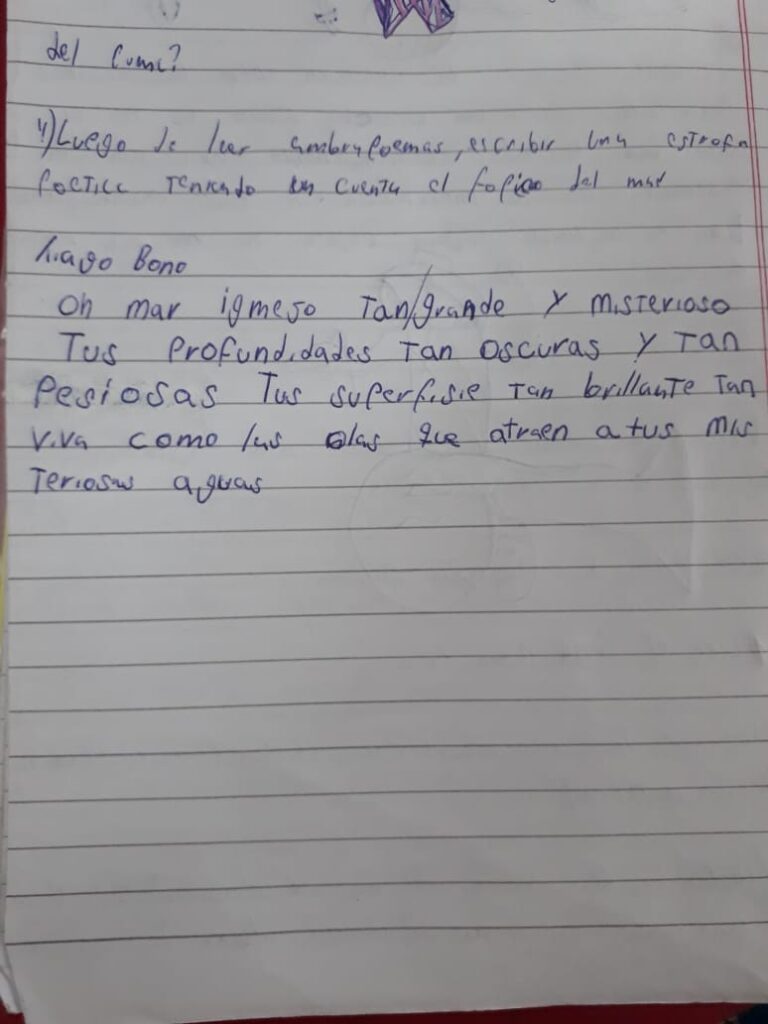 del
4) Luego de leer ambos poemas, escribir una estrofa
poetica teniendo en cuenta el del mar
Oh mar igmeso Tan/grande y misterioso
Tus profundidades Tan oscuras y Tan
Pesiosas Tus superfisie Tan brillante Tan
viva como las olas que atraen a tus mis
Teriosas aguas